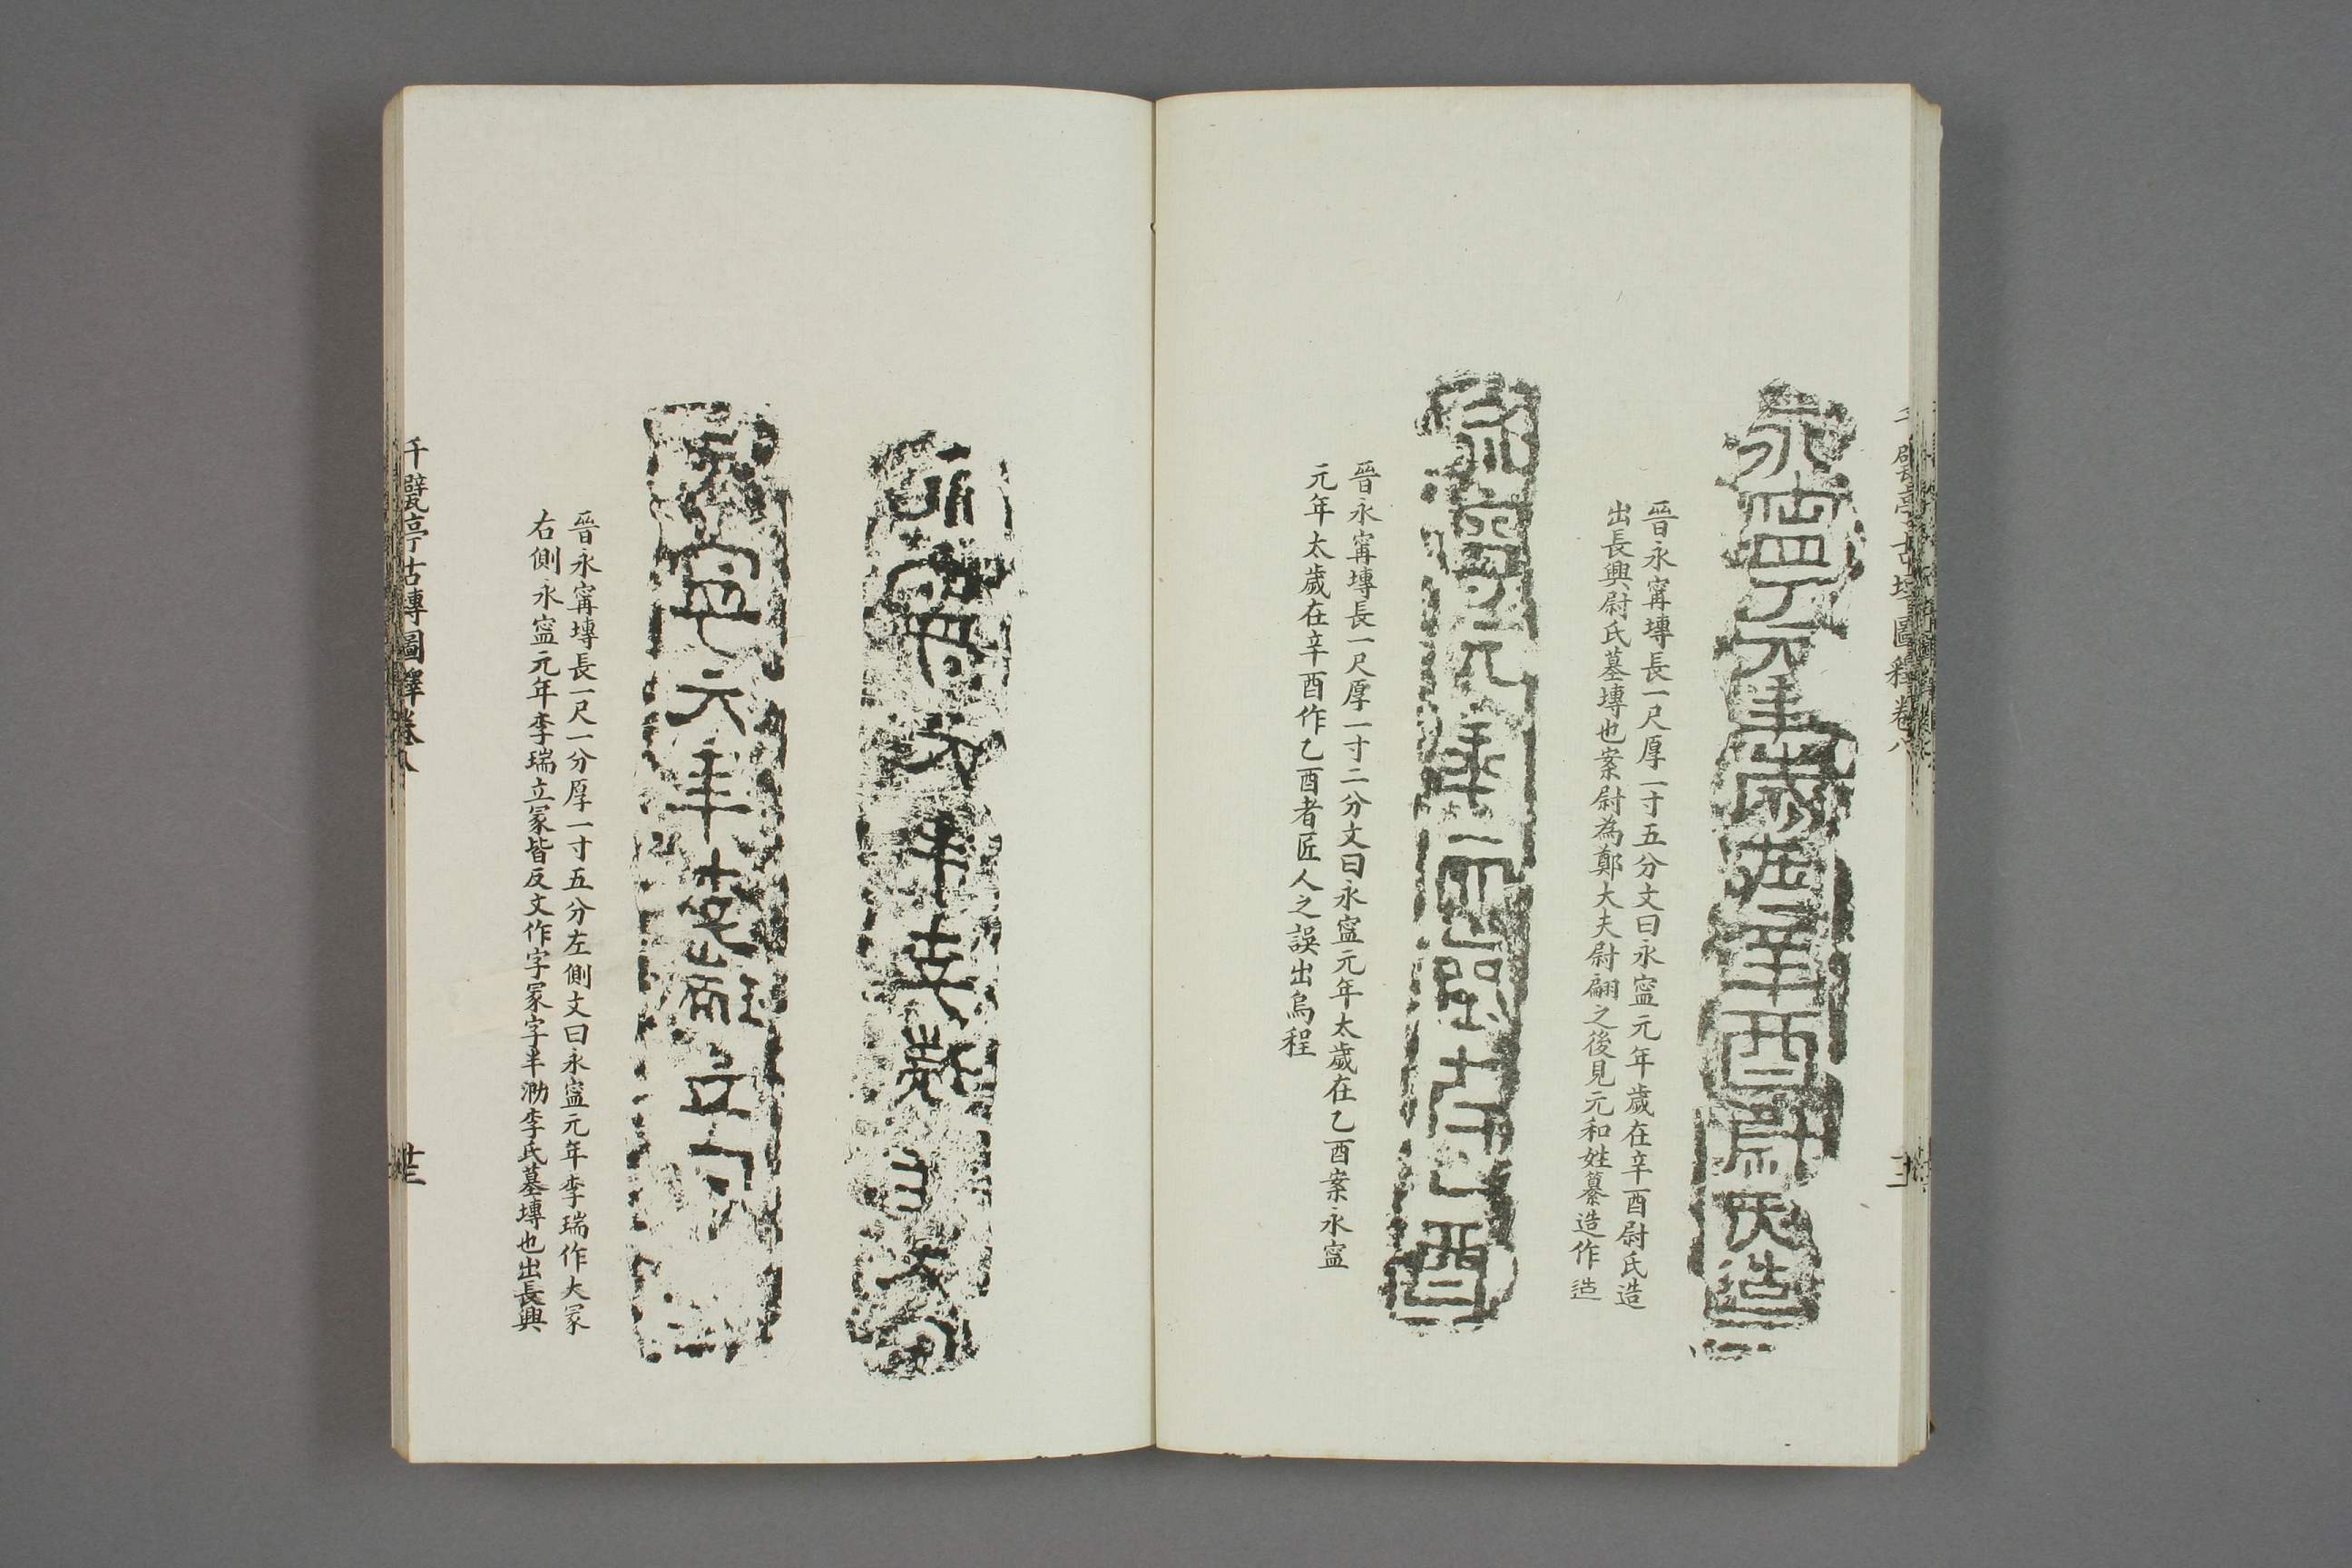 千甓亭古塼圖釋卷八
永寍元年歲在辛酉尉氏造
晉永甯塼長一尺厚一寸五分文曰永寍元年歲在辛酉尉氏造
出長興尉氏墓塼也案尉為鄭大夫尉翩之後見元和姓纂造作造
晉永甯塼長一尺厚一寸二分文曰永寍元年太歲在乙酉案永寍
元年太歲在辛酉作乙酉者匠人之誤出烏程
晉永甯塼長一尺一分厚一寸五分左側文曰永寍元年李瑞作大冢
右側永寍元年李瑞立冢皆反文作字冢字半泐李氏墓塼也出長興
千甓亭古塼圖釋卷八